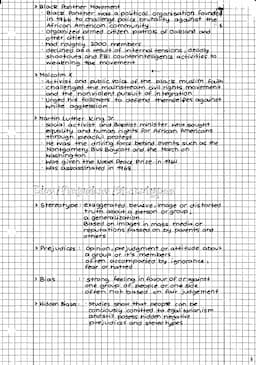 > Black Panther Movement
- Black Panther was a political organisation founded
in 1966 to challenge police brutality against the
African American community.
- organized armed citizen patrols of Oakland and
other cities
- had roughly 2000 members
- declined as a result of internal tensions, deadly
shootouts and FBI counterintelligence activities to
weakening the movement
> Malcolm X
- activist and public voice of the black muslim faith
challenged the mainstream civil rights movement
and the nonviolent pursuit of integration
- Urged his followers to defend themselves against
white aggression
> Martin Luther King Jr.
- social activist and Baptist minister who sought
equality and human rights for African Americans
through peaceful protest
- He was the driving force behind events such as the
Montgomery Bus Boycott and the March on
Washington
- Was given the Nobel Peace Prize in 1964
- Was assassinated in 1968
> Stereotype: exaggerated believe, image or distorted
truth about a person or group;
a generalization
- Based on images in mass media or
reputations passed on by parents and
others
> Prejudice : opinion, prejudgment or attitude about
a group or it's members
- often accompanied by ignorance,
fear or hatred
> Bias : strong feeling in favour of or against
one group of people or one side
often not based on fair judgement
> Hidden Bias: Studies show that people can be
consciously comitted to egalitarianism
and still posess hidden negative
prejudices and stereotypes